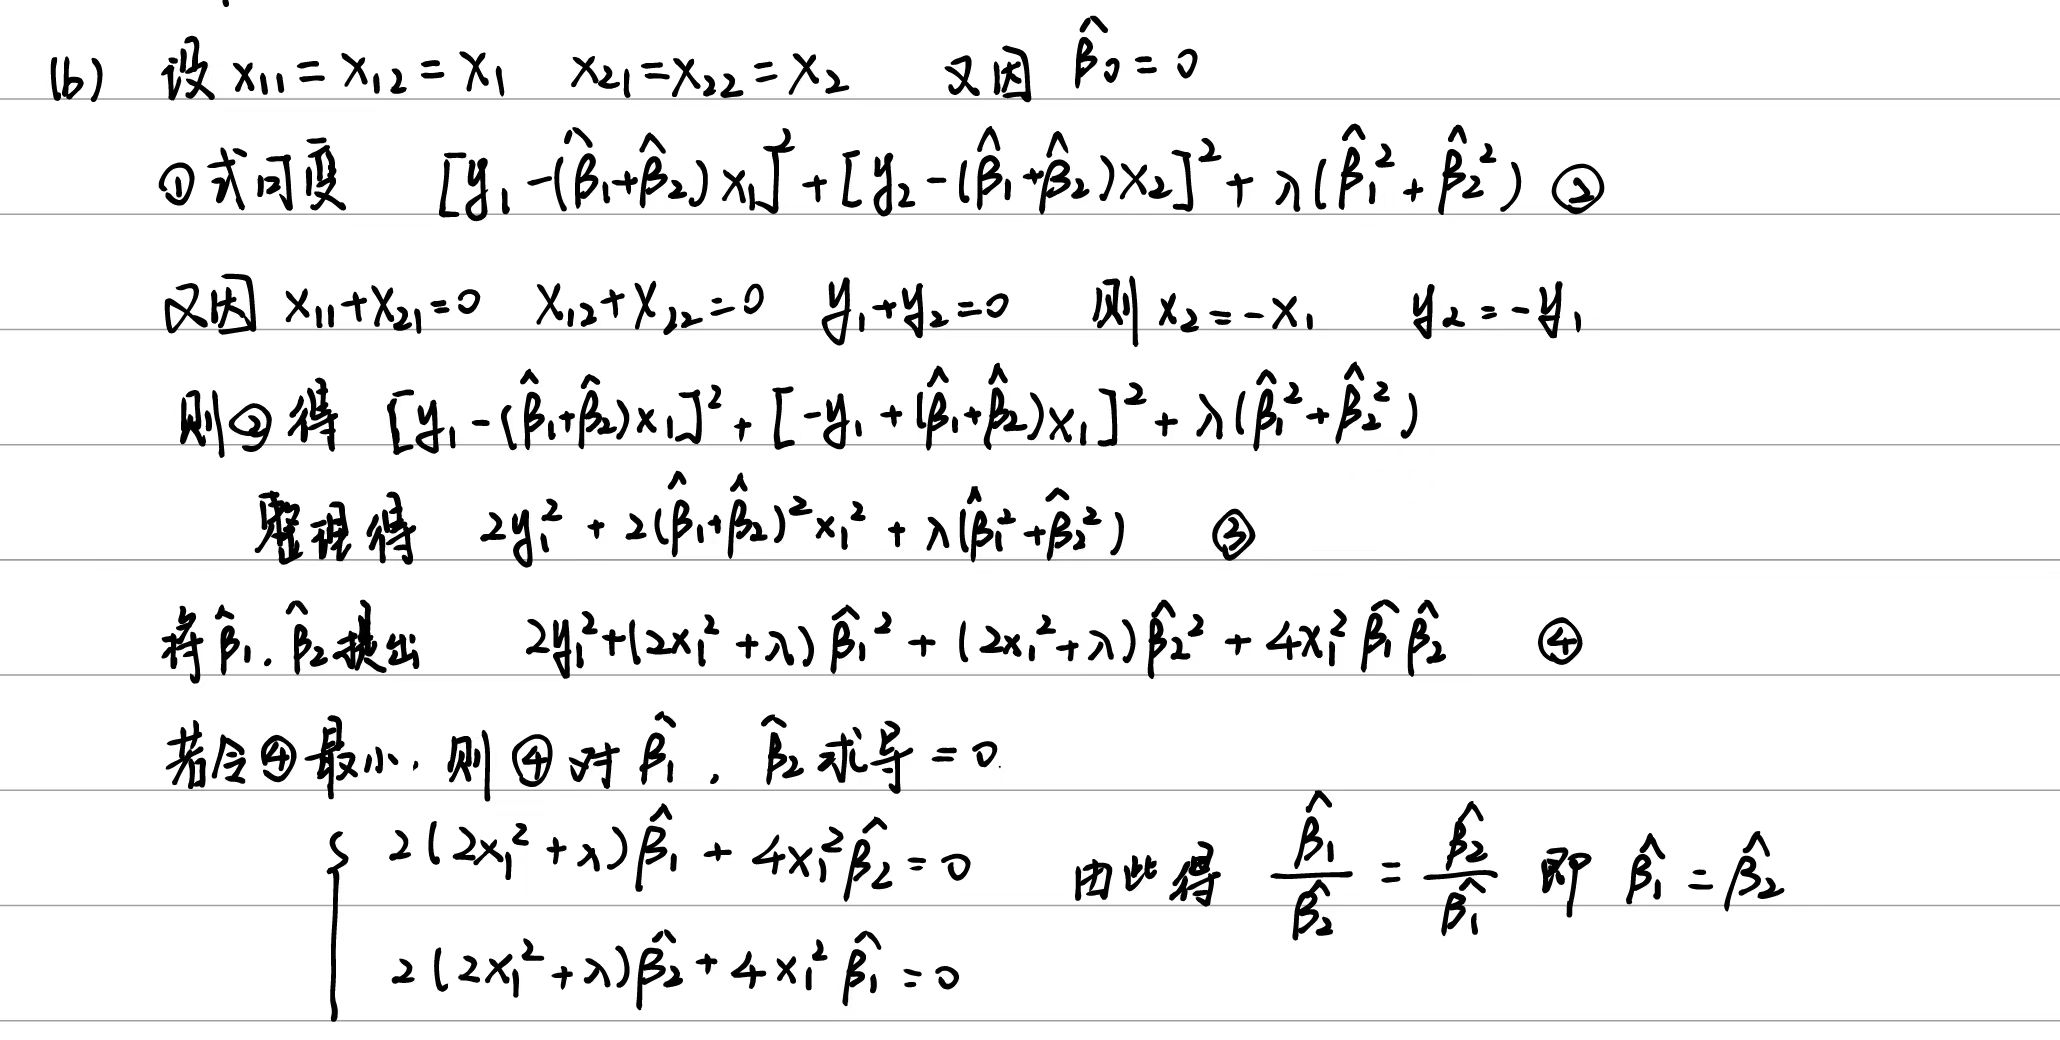 (b) 设 x₁₁ = x₁₂ = x₁ x₂₁ = x₂₂ = x₂ 又因 β̂₀ = 0
①式可变 [y₁ - (β̂₁+β̂₂)x₁]² + [y₂ - (β̂₁+β̂₂)x₂]² + λ(β̂₁² + β̂₂²) ②
又因 x₁₁+x₂₁=0 x₁₂+x₂₂=0 y₁+y₂=0 则 x₂=-x₁ y₂=-y₁
则②得 [y₁ - (β̂₁+β̂₂)x₁]² + [-y₁ + (β̂₁+β̂₂)x₁]² + λ(β̂₁²+β̂₂²)
整理得 2y₁² + 2(β̂₁+β̂₂)²x₁² + λ(β̂₁²+β̂₂²) ③
将β̂₁, β̂₂提出 2y₁²+(2x₁²+λ)β̂₁² + (2x₁²+λ)β̂₂² + 4x₁²β̂₁β̂₂ ④
若令④最小, 则④对 β̂₁, β̂₂求导 = 0.
{ 2(2x₁²+λ)β̂₁ + 4x₁²β̂₂ = 0 由此得 β̂₁/β̂₂ = β̂₂/β̂₁ 即 β̂₁ = β̂₂
2(2x₁²+λ)β̂₂ + 4x₁²β̂₁ = 0